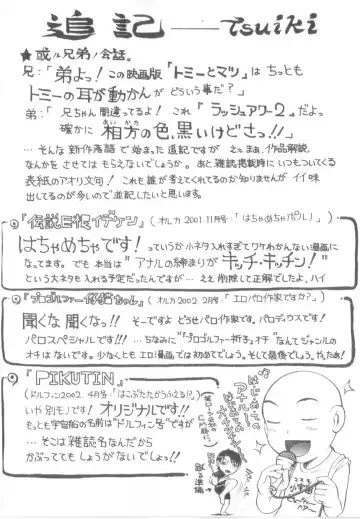 追記 ── tsuiki
★ 或ル兄弟ノ会話。
兄：「弟よっ！この映画版『トミーとマツ』は ちっとも
トミーの耳が動かんが どういう事だ？」
弟：「兄ちゃん間違ってるよ！ これ『ラッシュアワー2』だよ
確かに 相方の色、黒いけどさっ!!」
…そんな 新作落語 で始まった追記ですが ええ まぁ、作品解説
なんかを させては もらえないでしょうか。あと 雑誌掲載時に いつもついてくる
表紙のアオリ文句！ これも 誰が考えてくれてるのか知りませんが イイ味
出してるのが多いので 並記したいと思います。
(オルカ 2001.11月号：「はちゃめちゃペパル」)
はちゃめちゃです！っていうか 小ネタ入れすぎてワケわかんない漫画に
なってます。でも 本当は "アナルの締まりが キッチ・キッチン！"
という大ネタも 入れる予定だったんですが… ええ 削除して正解でしたよ、ハイ
(オルカ2002.2月号：「エロパロ作家ですか？」)
聞くな 聞くなっ!! そーですよ どうせパロ作家です。パロディウスです！
パロスペシャルです!!! …ちなみに『プロゴルファー祈子』オチ なんてジャンルの
オチはないです。少なくとも エロ漫画 では初めてでしょう。そして最後でしょう。やったぁ！
『PIKUTIN』
(ドルフィン2002.4月号：「はこぶたたかうふえる!?」)
いや 別モノです！ オリジナルです!!
もっとも 宇宙船の名前は "ドルフィン号" ですが
… そこは 雑誌名なんだから
かぶってても しょうがないでしょ!!